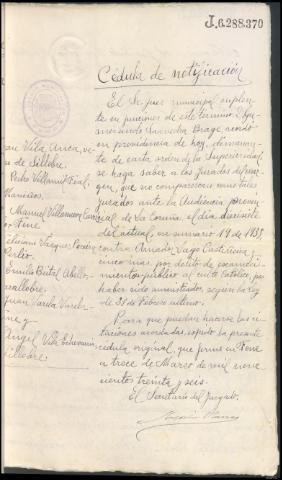 J.6.288.370
Cédula de notificación
El Sr. Juez municipal suplen-
te en funciones de este término D.
Saavedra Brage, acordó
en providencia de hoy, dimanan-
te de carta orden de la Superioridad,
se haga saber a los jurados del mar-
gen, que no comparezcan como tales
jurados ante la Audiencia provin-
cial de La Coruña, el día diecisiete
del actual, en sumario 19 de 1935
contra Amador Lago Casteñeira
cinco mas, por delito de escarne-
cimiento público al culto Católico, por
haber sido amnistiados, según la ley
de 21 de Febrero último.
Para que puedan hacerse las ci-
taciones acordadas, expido la presente
cédula original, que firmo en Fene
a trece de Marzo de mil nove-
cientos treinta y seis.
El Secretario del Juzgado.
Vila Anca, ve-
de Sillobre.
Pedro Villamil Leal,
Maniños.
Manuel Villamisar
Fene
Perlío.
Emilio
Barallobre.
Juan Varela
Ángel Vila Echevarría,
Sillobre.